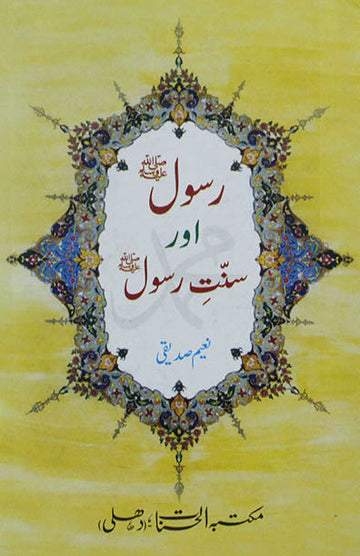 رسول ﷺ
اور
سنّتِ رسول ﷺ
محمد
نعیم صدیقی
مکتبہ الحسنات (دہلی)